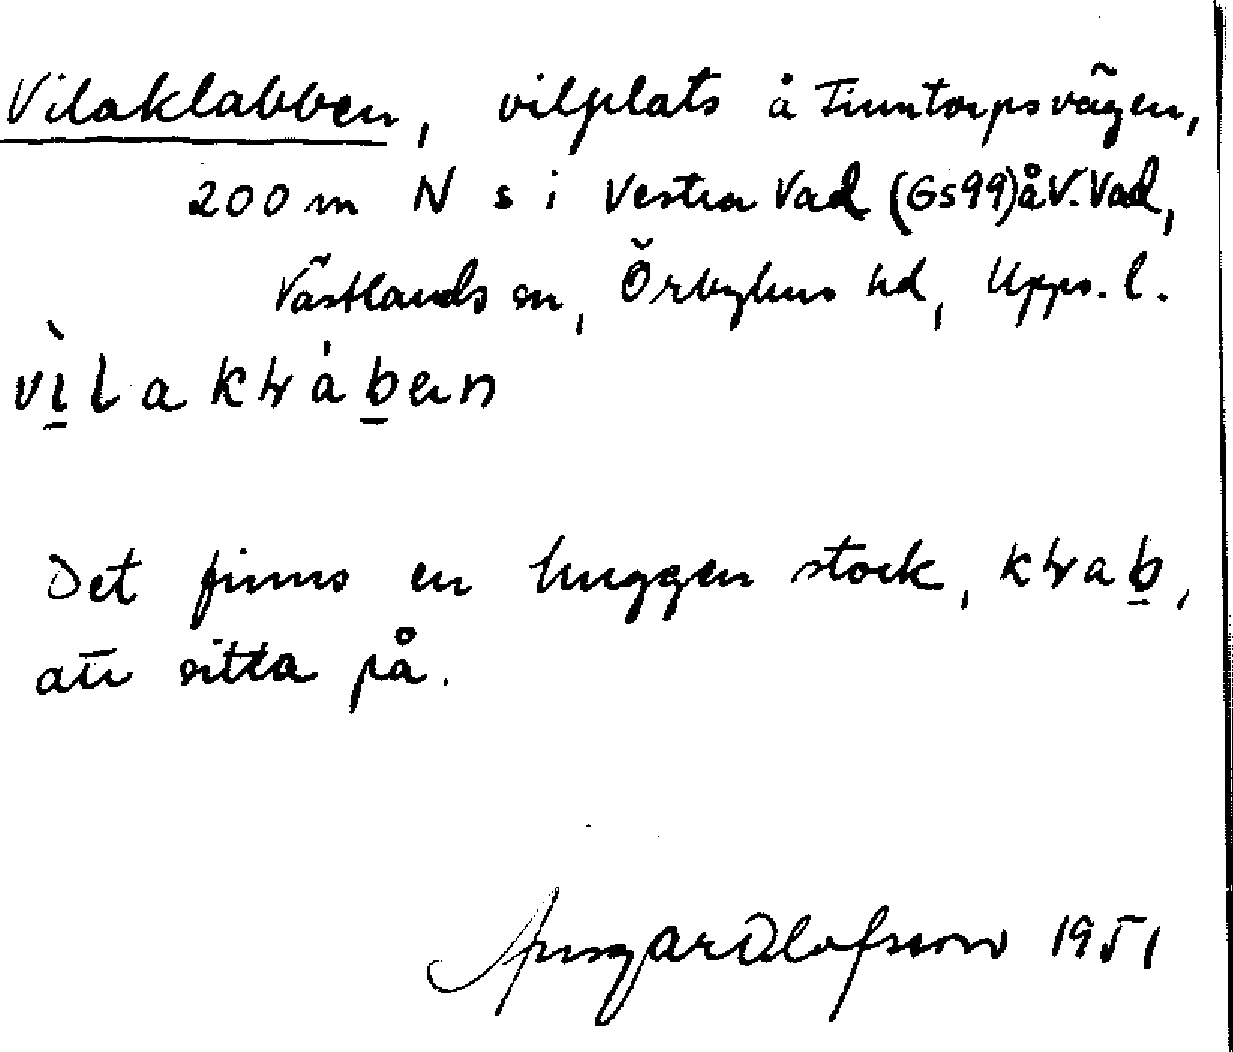 Vilaklabben, vilplats å Finntorpsvägen,
200 m N s i Vestra Vad (Gs99) å V. Vad,
Västlands sn, Örbyhus hd, Upps. l.
Det finns en huggen stock,
att sitta på.
Ansgar Olofsson 1951